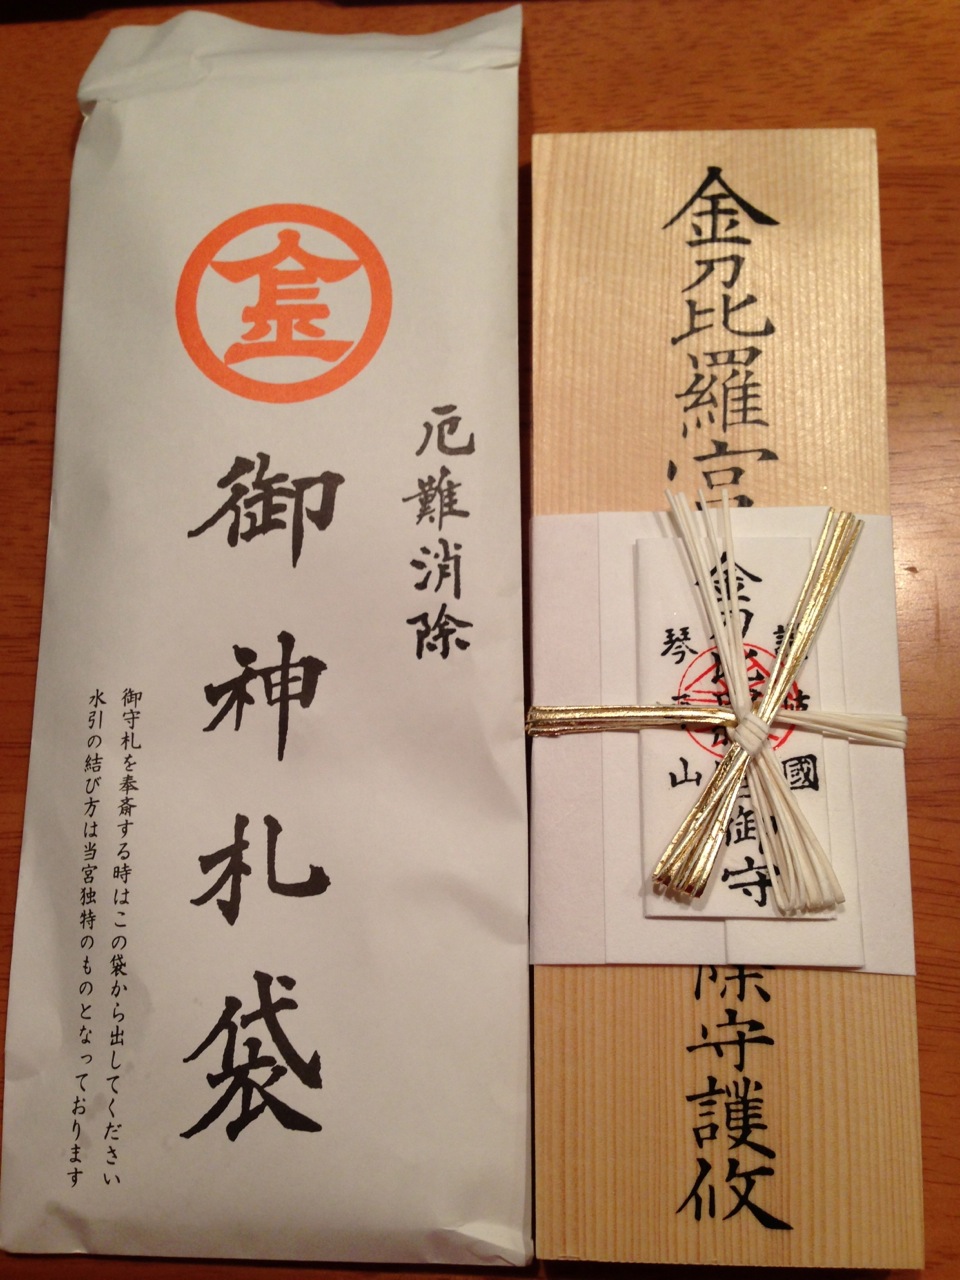 金
厄難消除
御神札袋
御守札を奉斎する時はこの袋から出してください
水引の結び方は当宮独特のものとなっております
金刀比羅宮
除守護攸
國
金刀比羅宮御守
琴平山